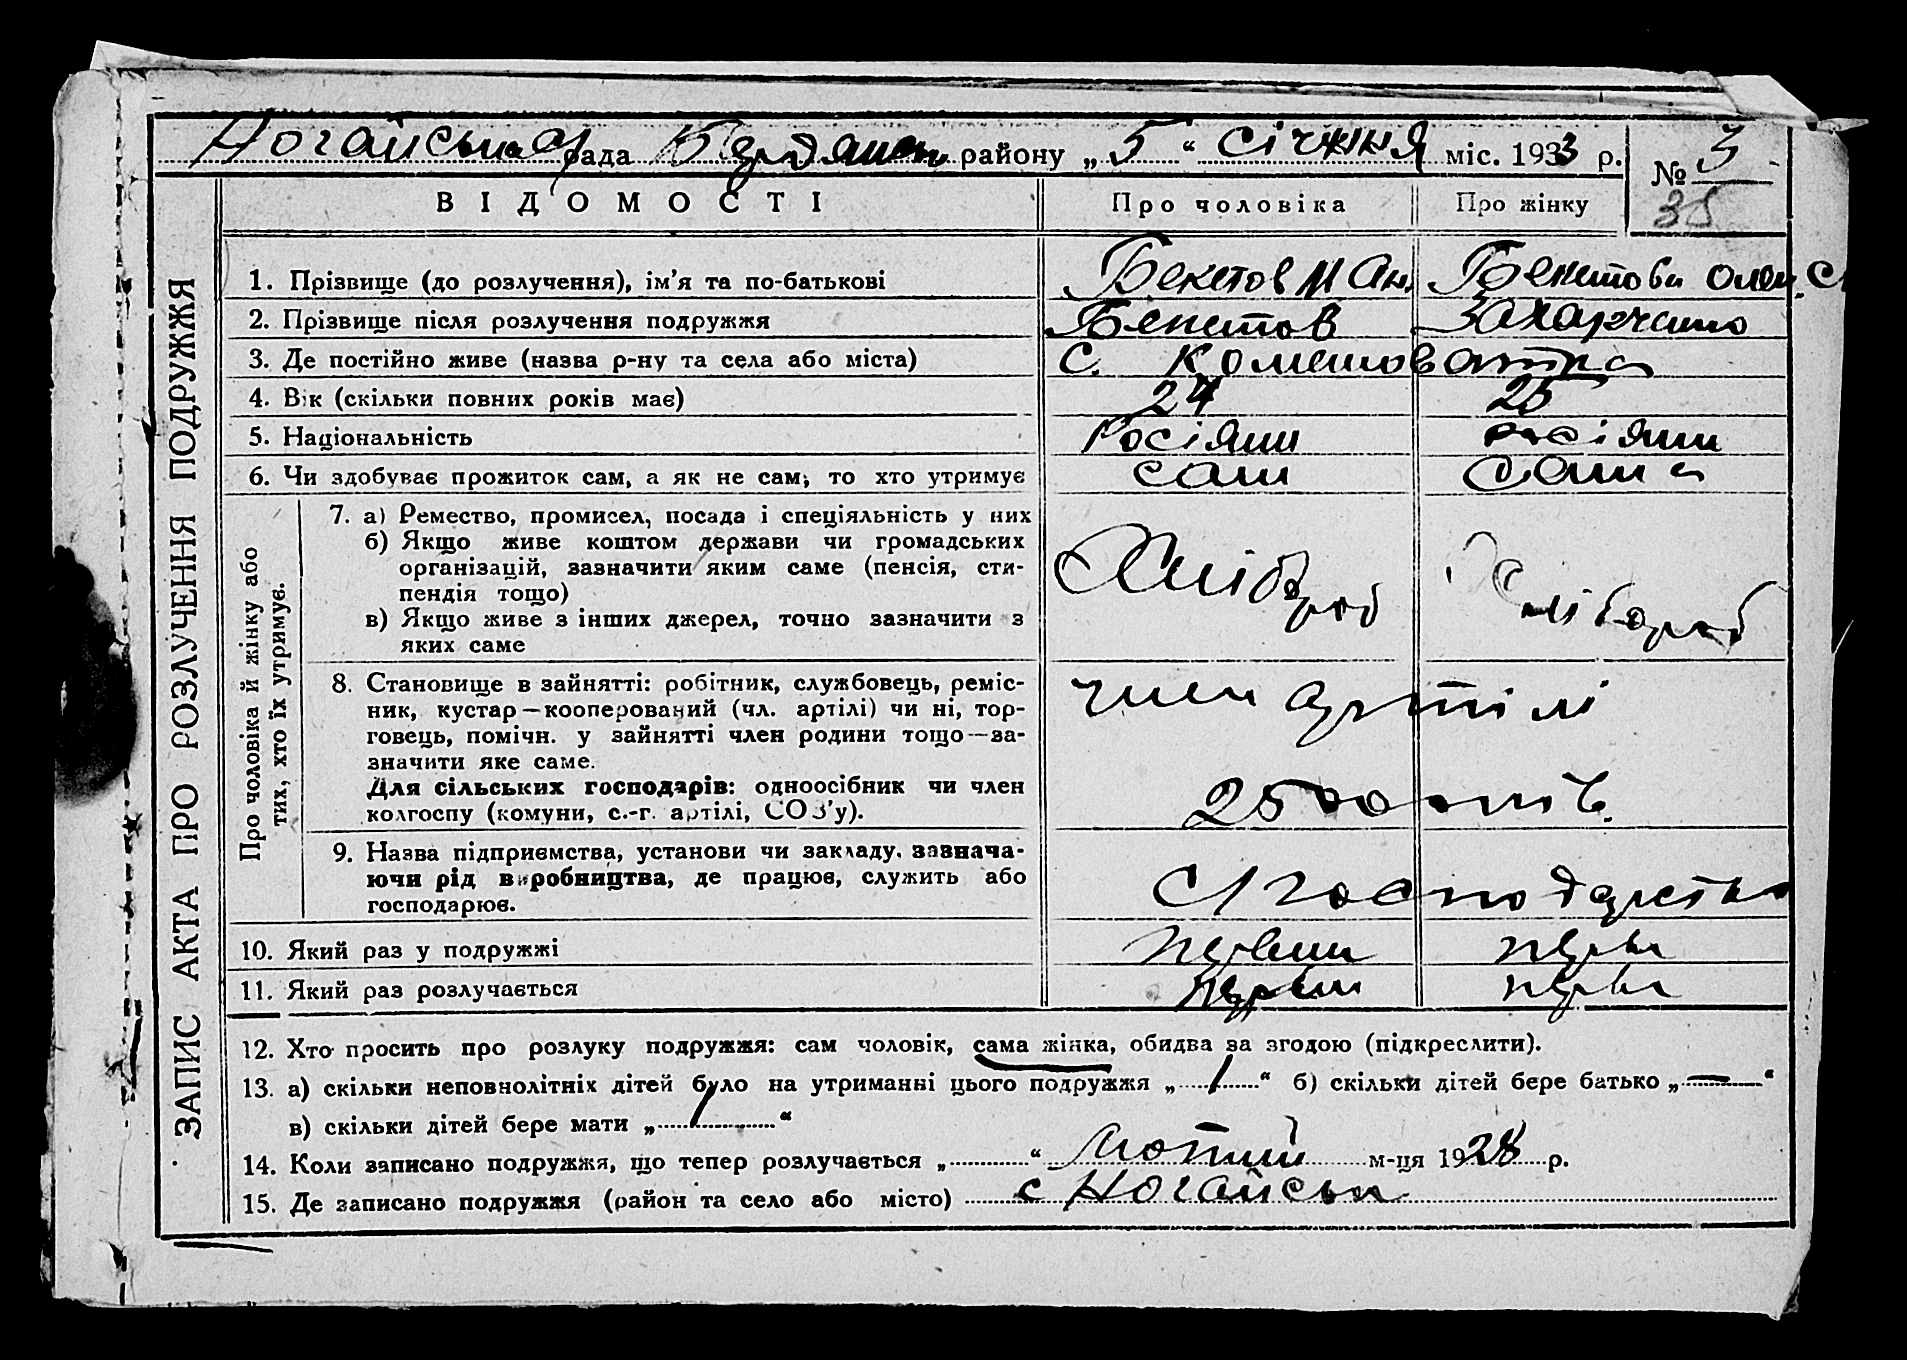 Ногайська рада Бердянськ району „5“ січння міс. 1933 р.
№ 3
35
ВІДОМОСТІ Про чоловіка Про жінку
ЗАПИС АКТА ПРО РОЗЛУЧЕННЯ ПОДРУЖЖЯ
1. Прізвище (до розлучення), ім’я та по-батькові Бекетов М Ан. Бекетова Олек. С.
2. Прізвище після розлучення подружжя Бекетов Захарченко
3. Де постійно живе (назва р-ну та села або міста) с. Комишоватка
4. Вік (скільки повних років має) 24 25
5. Національність Росіяни росіяни
6. Чи здобуває прожиток сам, а як не сам, то хто утримує сам сама
Про чоловіка й жінку або тих, хто їх утримує.
7. а) Ремество, промисел, посада і спеціяльність у них
б) Якщо живе коштом держави чи громадських
організацій, зазначити яким саме (пенсія, сти-
пендія тощо) Хлібороб Хлібороб
в) Якщо живе з інших джерел, точно зазначити з
яких саме
8. Становище в зайнятті: робітник, службовець, реміс- член артілі
ник, кустар—кооперований (чл. артілі) чи ні, тор-
говець, помічн. у зайнятті член родини тощо—за-
значити яке саме.
Для сільських господарів: одноосібник чи член
колгоспу (комуни, с.-г. артілі, СОЗ’у).
9. Назва підприємства, установи чи закладу, зазнача-
ючи рід виробництва, де працює, служить або
господарює.
10. Який раз у подружжі перший
11. Який раз розлучається перший
12. Хто просить про розлуку подружжя: сам чоловік, сама жінка, обидва за згодою (підкреслити).
13. а) скільки неповнолітніх дітей було на утриманні цього подружжя „1“ б) скільки дітей бере батько „—“
в) скільки дітей бере мати „1“
14. Коли записано подружжя, що тепер розлучається „ “ Лютий м-ця 1928 р.
15. Де записано подружжя (район та село або місто) с Ногайськ